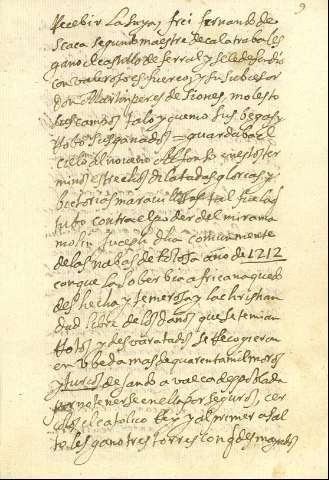 9
Recebir la suya, frei fernando de
Scaca segundo maestre de calatraba les
gano el castillo de ferral, y se le defendio
con valerosos esfuerços, y su subcesor
don Martin peres de siones molesto
sus campos talo y quemo sus begas y
Robo sus ganados = guardaba el
cielo al noveno Alfonso en estos ter
minos estrechos dilatadas glorias y
bectorias maravillosas tal fue la q
tubo contra el poder del mirama
molin Juceph dha comunmente
de las nabas de tolosa año de 1212
con que la soberbia africana quedo
deshecha y temerosa y la christian
dad libre de los daños que se temian
Rotos y desvaratados se Recogieron
en vbeda mas de quarenta mil moros
y turcos dejando a vaeca despoblada
por no tenerse en ella por seguros, cer
colos el catolico Rey y al primer asal
to les gano tres torres con q desmayados